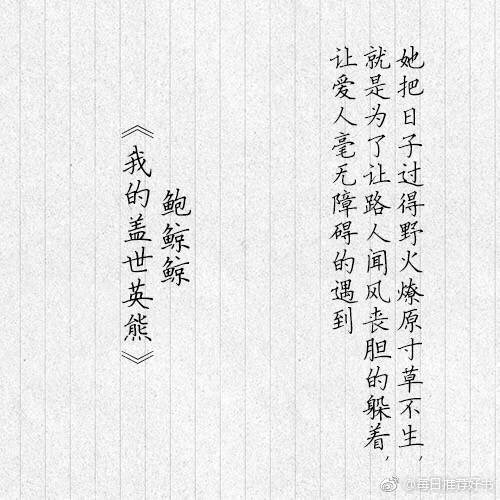 她把日子过得野火燎原寸草不生，
就是为了让路人闻风丧胆的躲着，
让爱人毫无障碍的遇到
鲍鲸鲸
《我的盖世英熊》
@每日推荐好书